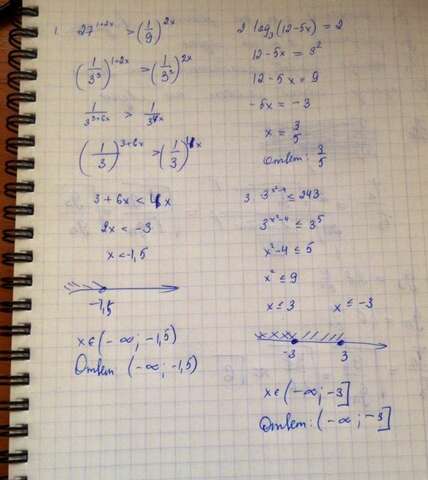 1. 27^{1+2x} > (1/9)^{2x}
(1/3^3)^{1+2x} > (1/3^2)^{2x}
1/3^{3+6x} > 1/3^{4x}
(1/3)^{3+6x} > (1/3)^{4x}
3 + 6x < 4x
2x < -3
x < -1,5
-1,5
x ∈ (-∞; -1,5)
Ответ: (-∞; -1,5)
2. log_3(12-5x) = 2
12-5x = 3^2
12-5x = 9
-5x = -3
x = 3/5
Ответ: 3/5
3. 3^{x^2-4} ≤ 243
3^{x^2-4} ≤ 3^5
x^2-4 ≤ 5
x^2 ≤ 9
x ≤ 3 x ≤ -3
-3 3
x ∈ (-∞; -3]
Ответ: (-∞; -3]